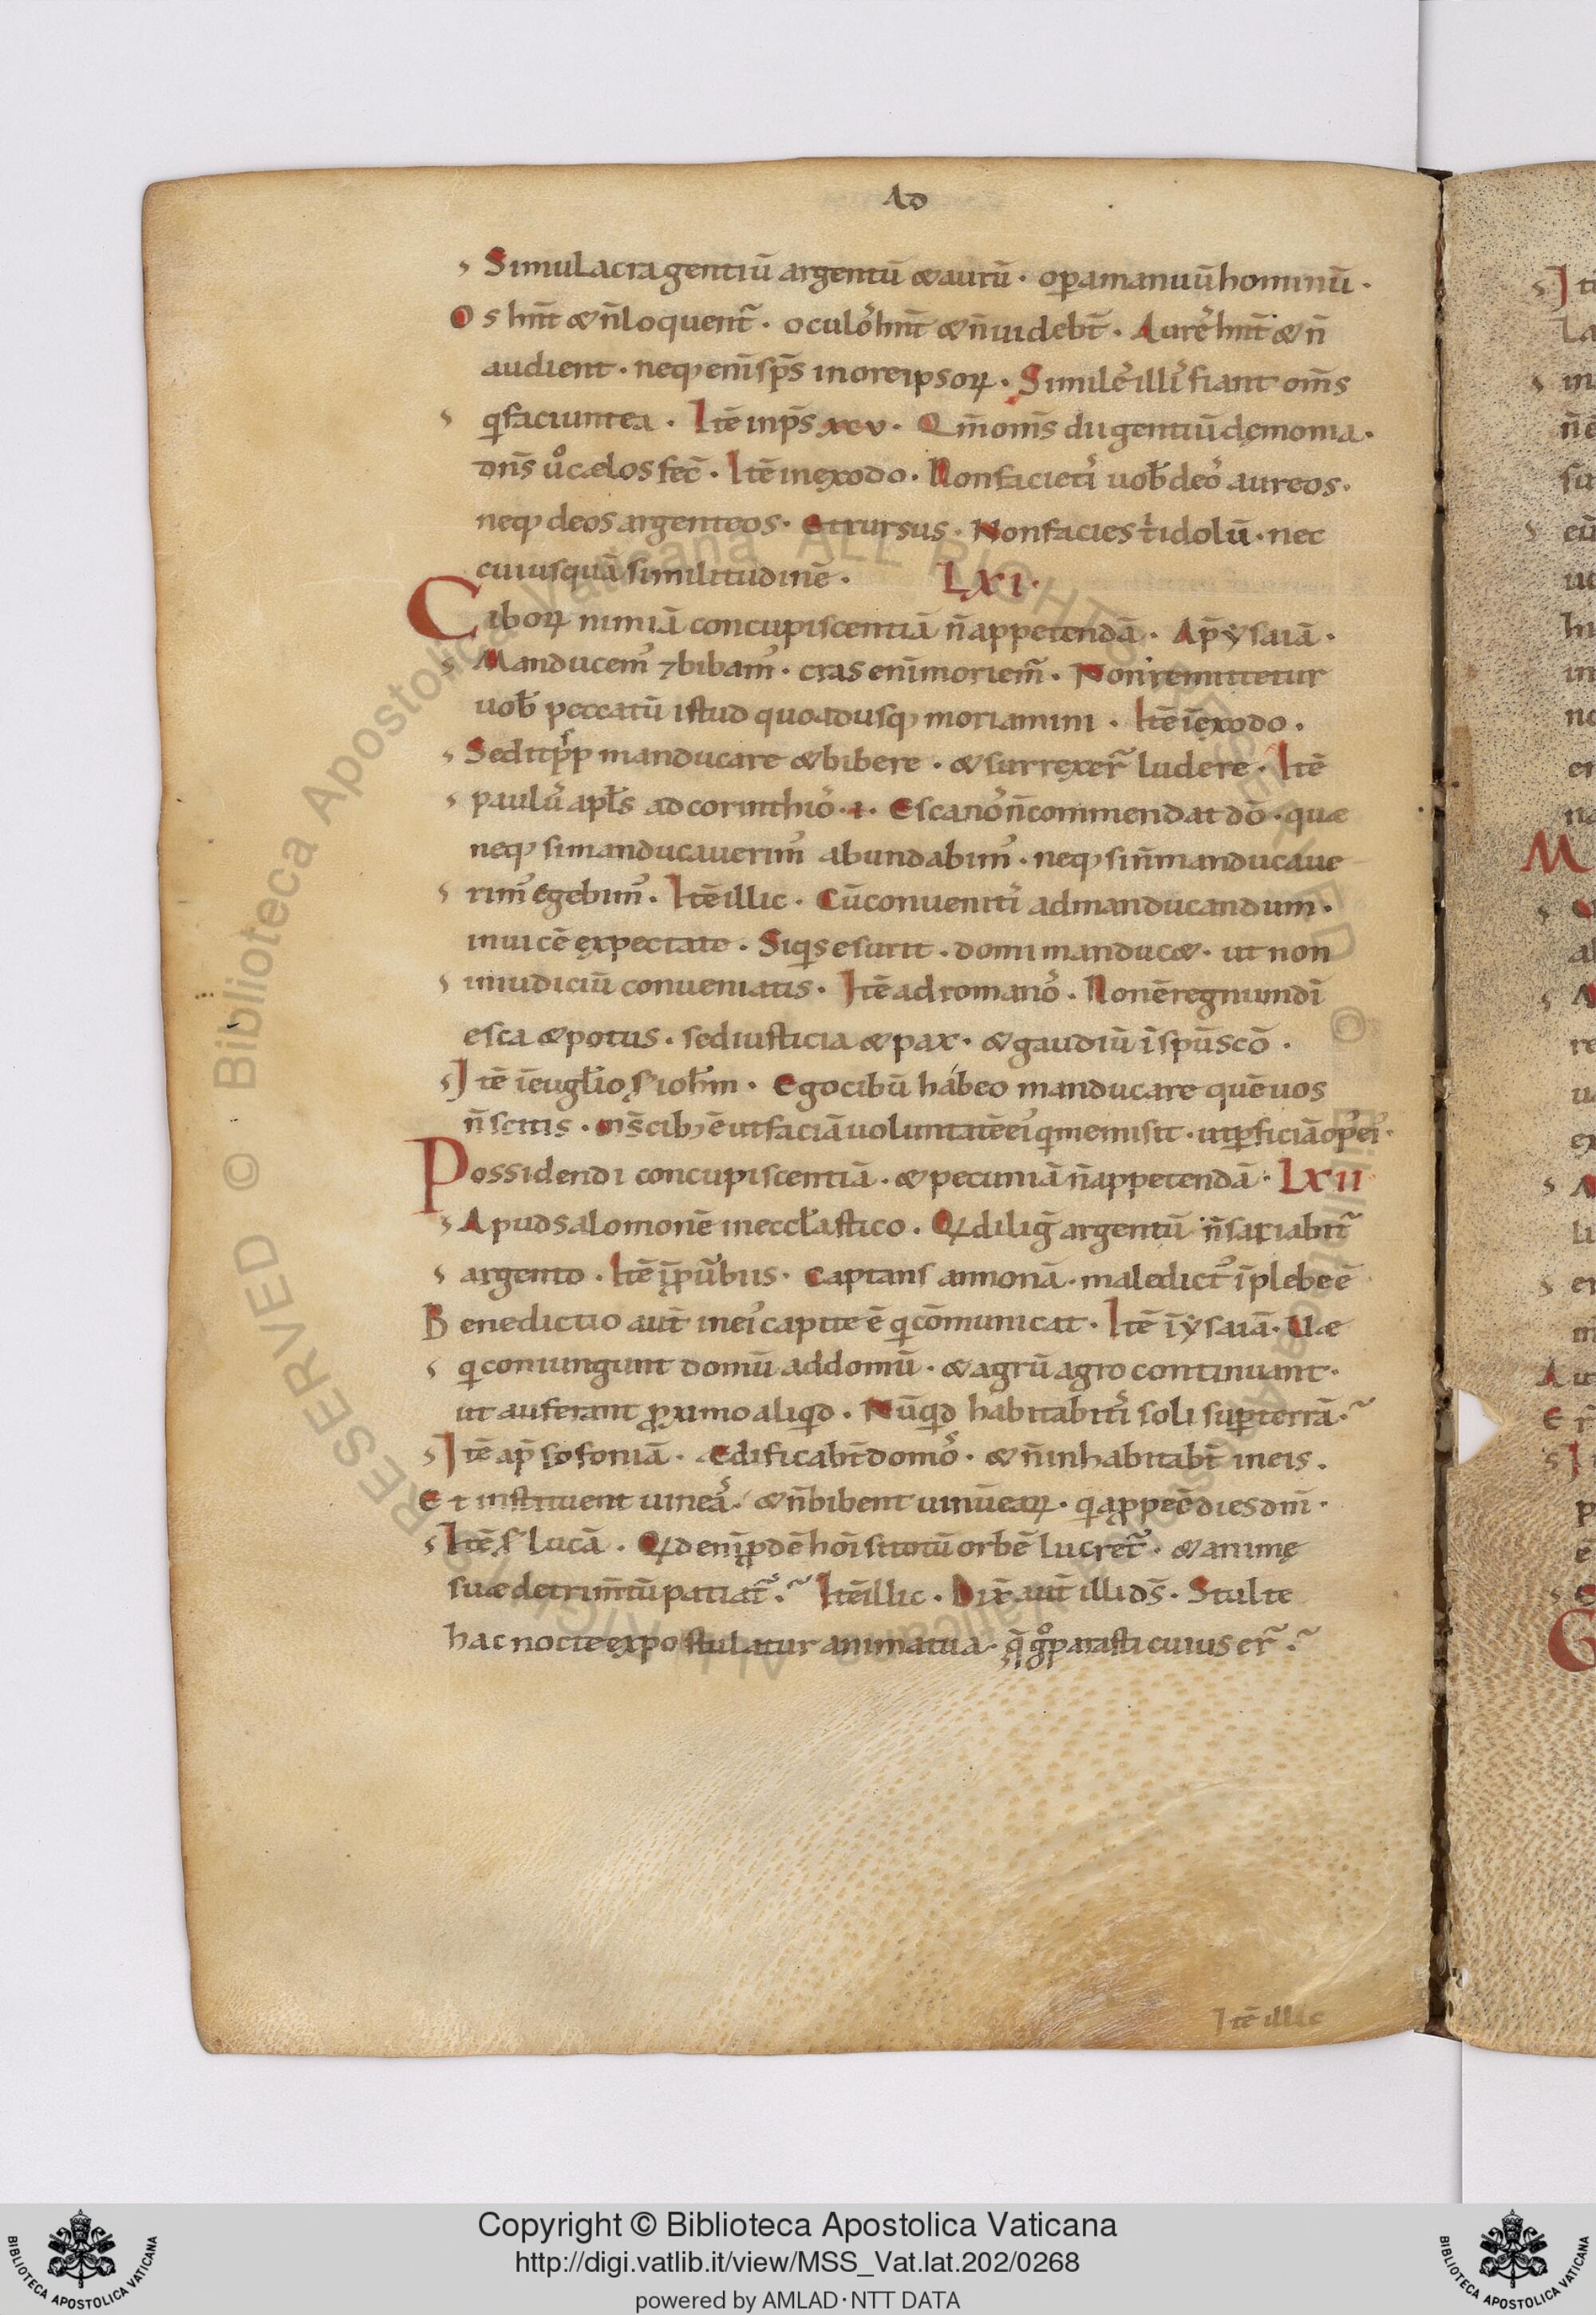 Ad
Simulacra gentiū argentū & aurū · op̄a manuū hominū ·
Os hn̄t & n̄ loquent᷑ · oculos hn̄t & n̄ uidebt̄ · Aures hn̄t & n̄
audient · neq; eni᷒ sp̄s in ore ipsoꝝ · Similes illis fiant om̄s
q̇ faciunt ea · Itē in ps̄ xcv · Qm̄ om̄s dii gentiū dęmonia ·
dn̄s ů cælos fec̄ · Itē in exodo · Non facietis uob̄ deos aureos ·
neq; deos argenteos · Et rursus · Non facies t̄ idolū · nec
cuiusquā similitudinē · LXI ·
Ciboꝝ nimiā concupiscentiā n̄ appetendā · Ap̄ ysaiā ·
Manducem᷒ ⁊ bibam᷒ · cras eni᷒ moriem᷑ · Non remittetur
uob̄ peccatū istud quoadusq; moriamini · Itē ī exodo ·
Sedit ppl̄s manducare & bibere · & surrexer᷑ ludere · Itē
paulus apl̄s ad corinthios · i · Esca nos n̄ commendat dō · quæ
neq; si manducauerim᷒ abundabim᷒ · neq; si n̄ manducaue
rim᷒ egebim᷒ · Itē illic · Cū conuenitis ad manducandum ·
inuicē expectate · Siq̇s esurit · domi manduc& · ut non
in iudiciū conueniatis · Itē ad romanos · Non ē regnū di᷒
esca & potus · sed iusticia & pax · & gaudiū ī spū scō ·
Itē ī eugl̄io s̄ ioh̄m · Ego cibū habeo manducare quē uos
n̄ scitis · ms̄ cib; ē ut faciā uoluntatē ei᷒ q̇ me misit · ut ꝑficiā op᷒ ei᷒ ·
Possidendi concupiscentiā · & pecuniā n̄ appetendā · LXII
Apud salomonē in eccl̄astico · Q̇ diliḡ argentū n̄ satiabit᷑
argento · Itē ī ꝓuerbiis · Captans annonā · maledict᷒ ī plebe ē
Benedictio aut̄ in ei᷒ capite ē q̇ cōmunicat · Itē ī ysaiā · Uæ
q̇ coniungunt domū ad domū · & agrū agro continuant ·
ut auferant ꝓximo aliq̇d · Nūq̇d habitabitis soli suꝑ terrā ·
Itē ap̄ sofoniā · Edificabt̄ domos · & n̄ inhabitabt̄ in eis ·
Et instituent uineas · & n̄ bibent uinū eaꝝ · q̇a ꝓpe ē dies dn̄i ·
Itē s̄ lucā · Q̇d eni᷒ ꝓdē hōi si totū orbē lucret᷑ · & animę
suæ detrimt̄ū patiat᷑ · Itē illic · Dix̄ aut̄ illi ds̄ · Stulte
hac nocte expostulatur anima tua · q̄ ḡ ꝑarasti cuius er᷑ ·
Itē illic
Copyright © Biblioteca Apostolica Vaticana
http://digi.vatlib.it/view/MSS_Vat.lat.202/0268
powered by AMLAD·NTT DATA